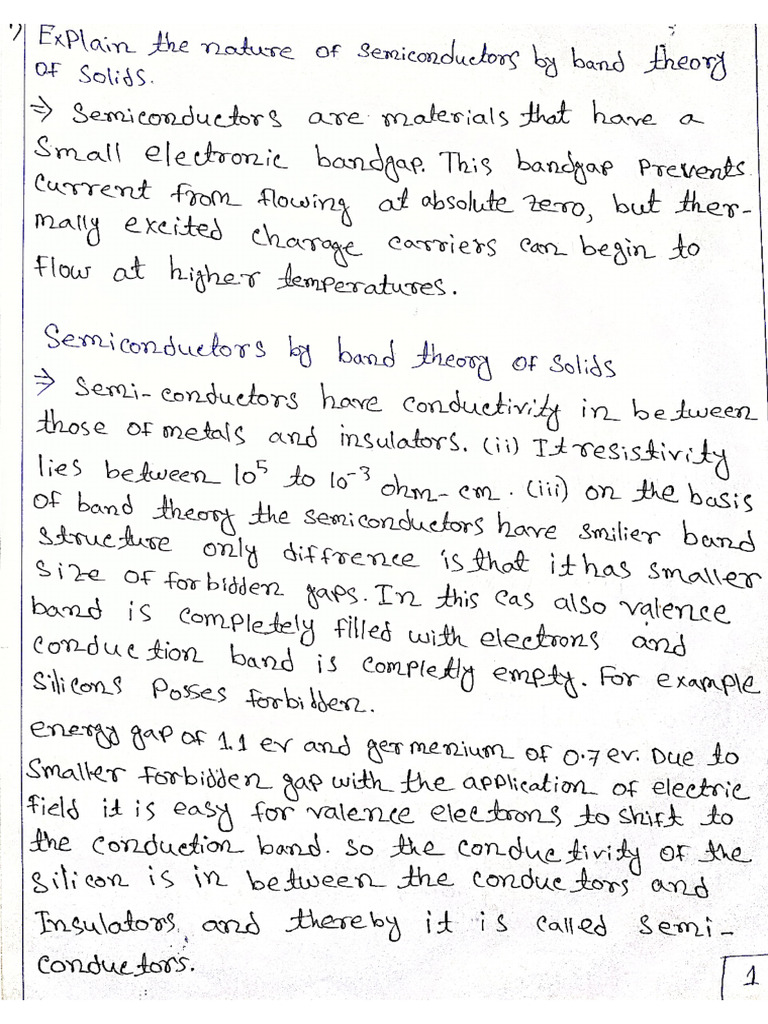 1) Explain the nature of semiconductors by band theory
of solids.
⇒ Semiconductors are materials that have a
small electronic bandgap. This bandgap prevents
current from flowing at absolute zero, but ther-
mally excited charage carriers can begin to
flow at higher temperatures.
Semiconductors by band theory of solids
⇒ Semi-conductors have conductivity in between
those of metals and insulators. (ii) It resistivity
lies between 10⁵ to 10⁻³ ohm-cm. (iii) on the basis
of band theory the semiconductors have smilier band
structure only diffrence is that it has smaller
size of forbidden gaps. In this cas also valence
band is completely filled with electrons and
conduction band is complety empty. For example
silicons posses forbidden.
energy gap of 1.1 ev and germenium of 0.7 ev. Due to
smaller forbidden gap with the application of electric
field it is easy for valence electrons to shift to
the conduction band. so the conductivity of the
silicon is in between the conductors and
Insulators, and thereby it is called semi-
conductors.
1